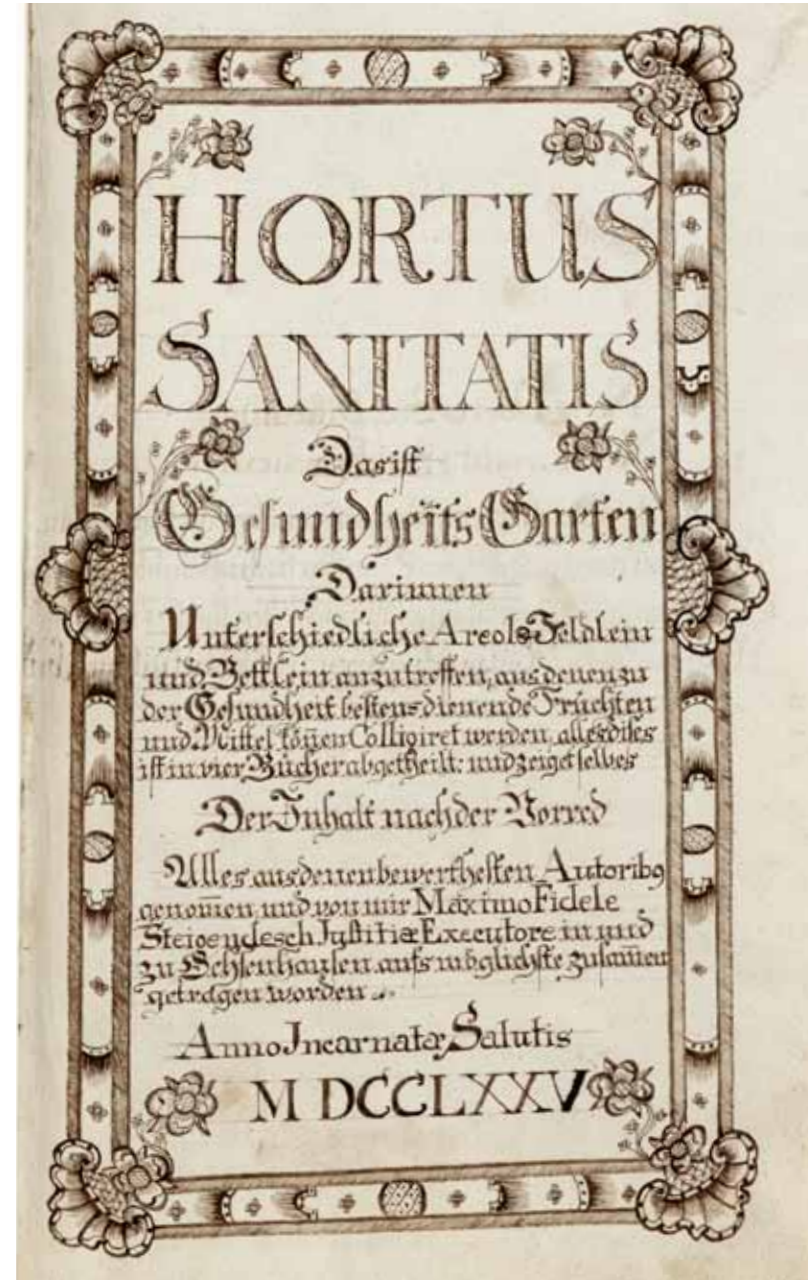 HORTUS
SANITATIS
Das ist
Gesundheits Garten
Darinnen
Unterschiedliche Areolæ Feldlein
und Bettlein anzutreffen, aus denen zu
der Gesundheit bestens dienende Früchten
und Mittel köñen Colligiret werden, alles dises
ist in vier Bücher abgetheilt: und zeiget selbes
Der Inhalt nach der Vorred
Alles aus denen bewerthesten Autoribꝰ
genom̄en und von mir Maximo Fidele
Steigendesch Justitiæ Executore in und
zu Ochsenhausen aufs möglichste zusam̄en
getragen worden
Anno Incarnatæ Salutis
M DCCLXXV